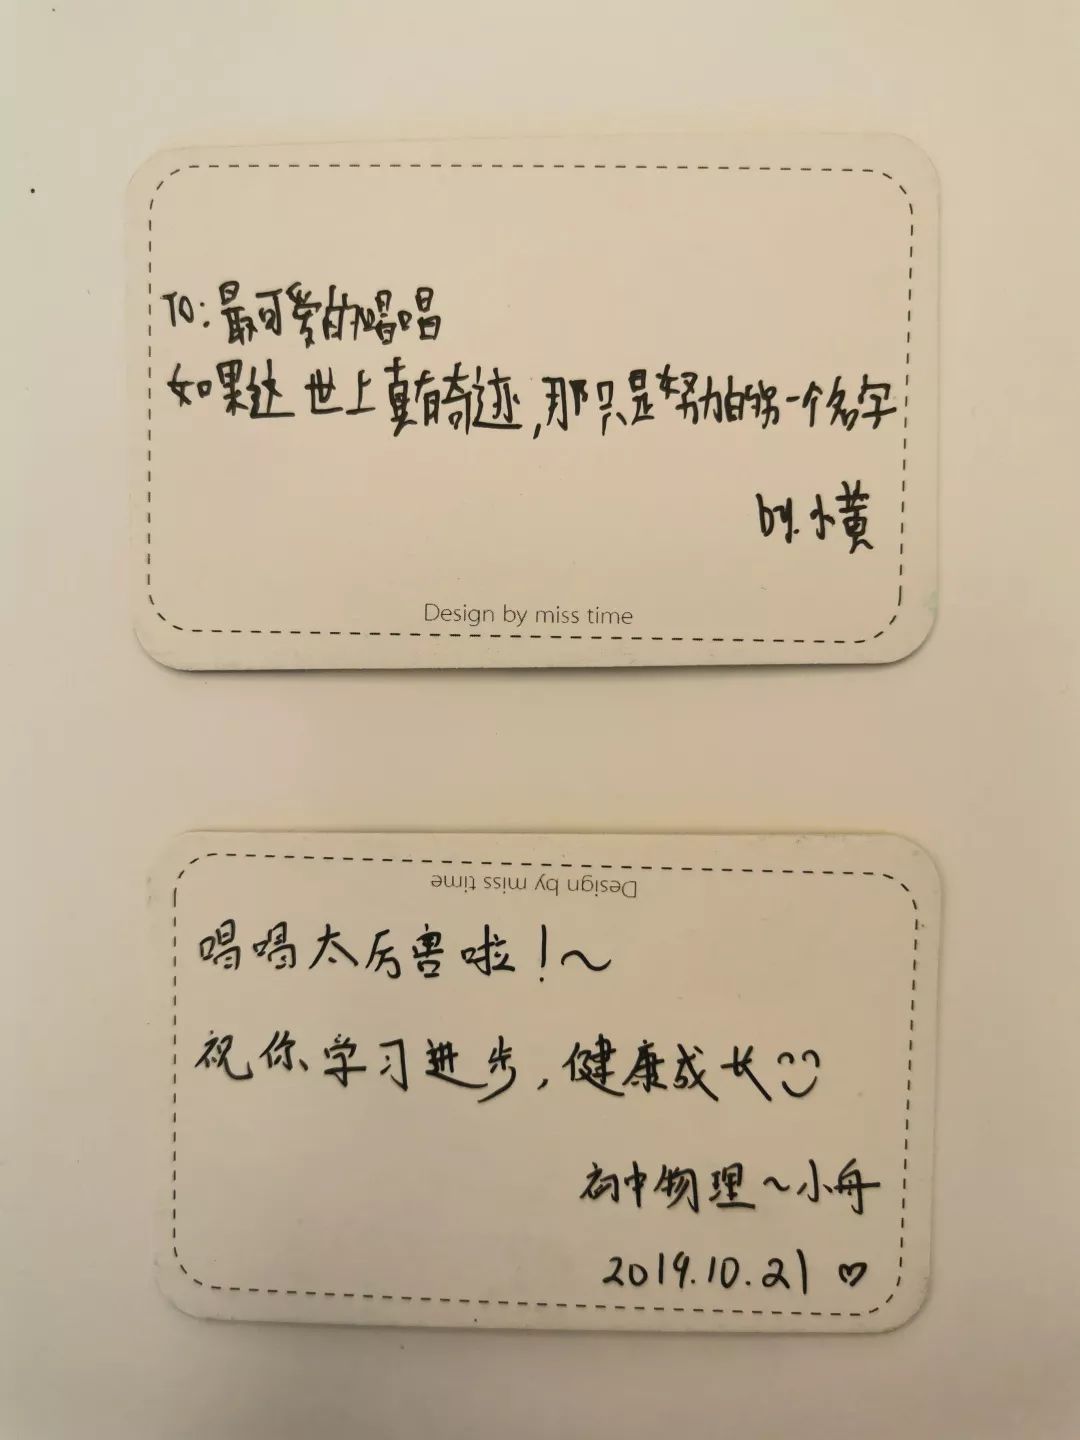 TO:最可爱的唱唱
如果这世上真有奇迹,那只是努力的另一个名字
by.小黄
Design by miss time
Design by miss time
唱唱太厉害啦!~
祝你学习进步,健康成长
初中物理~小舟
2019.10.21♡